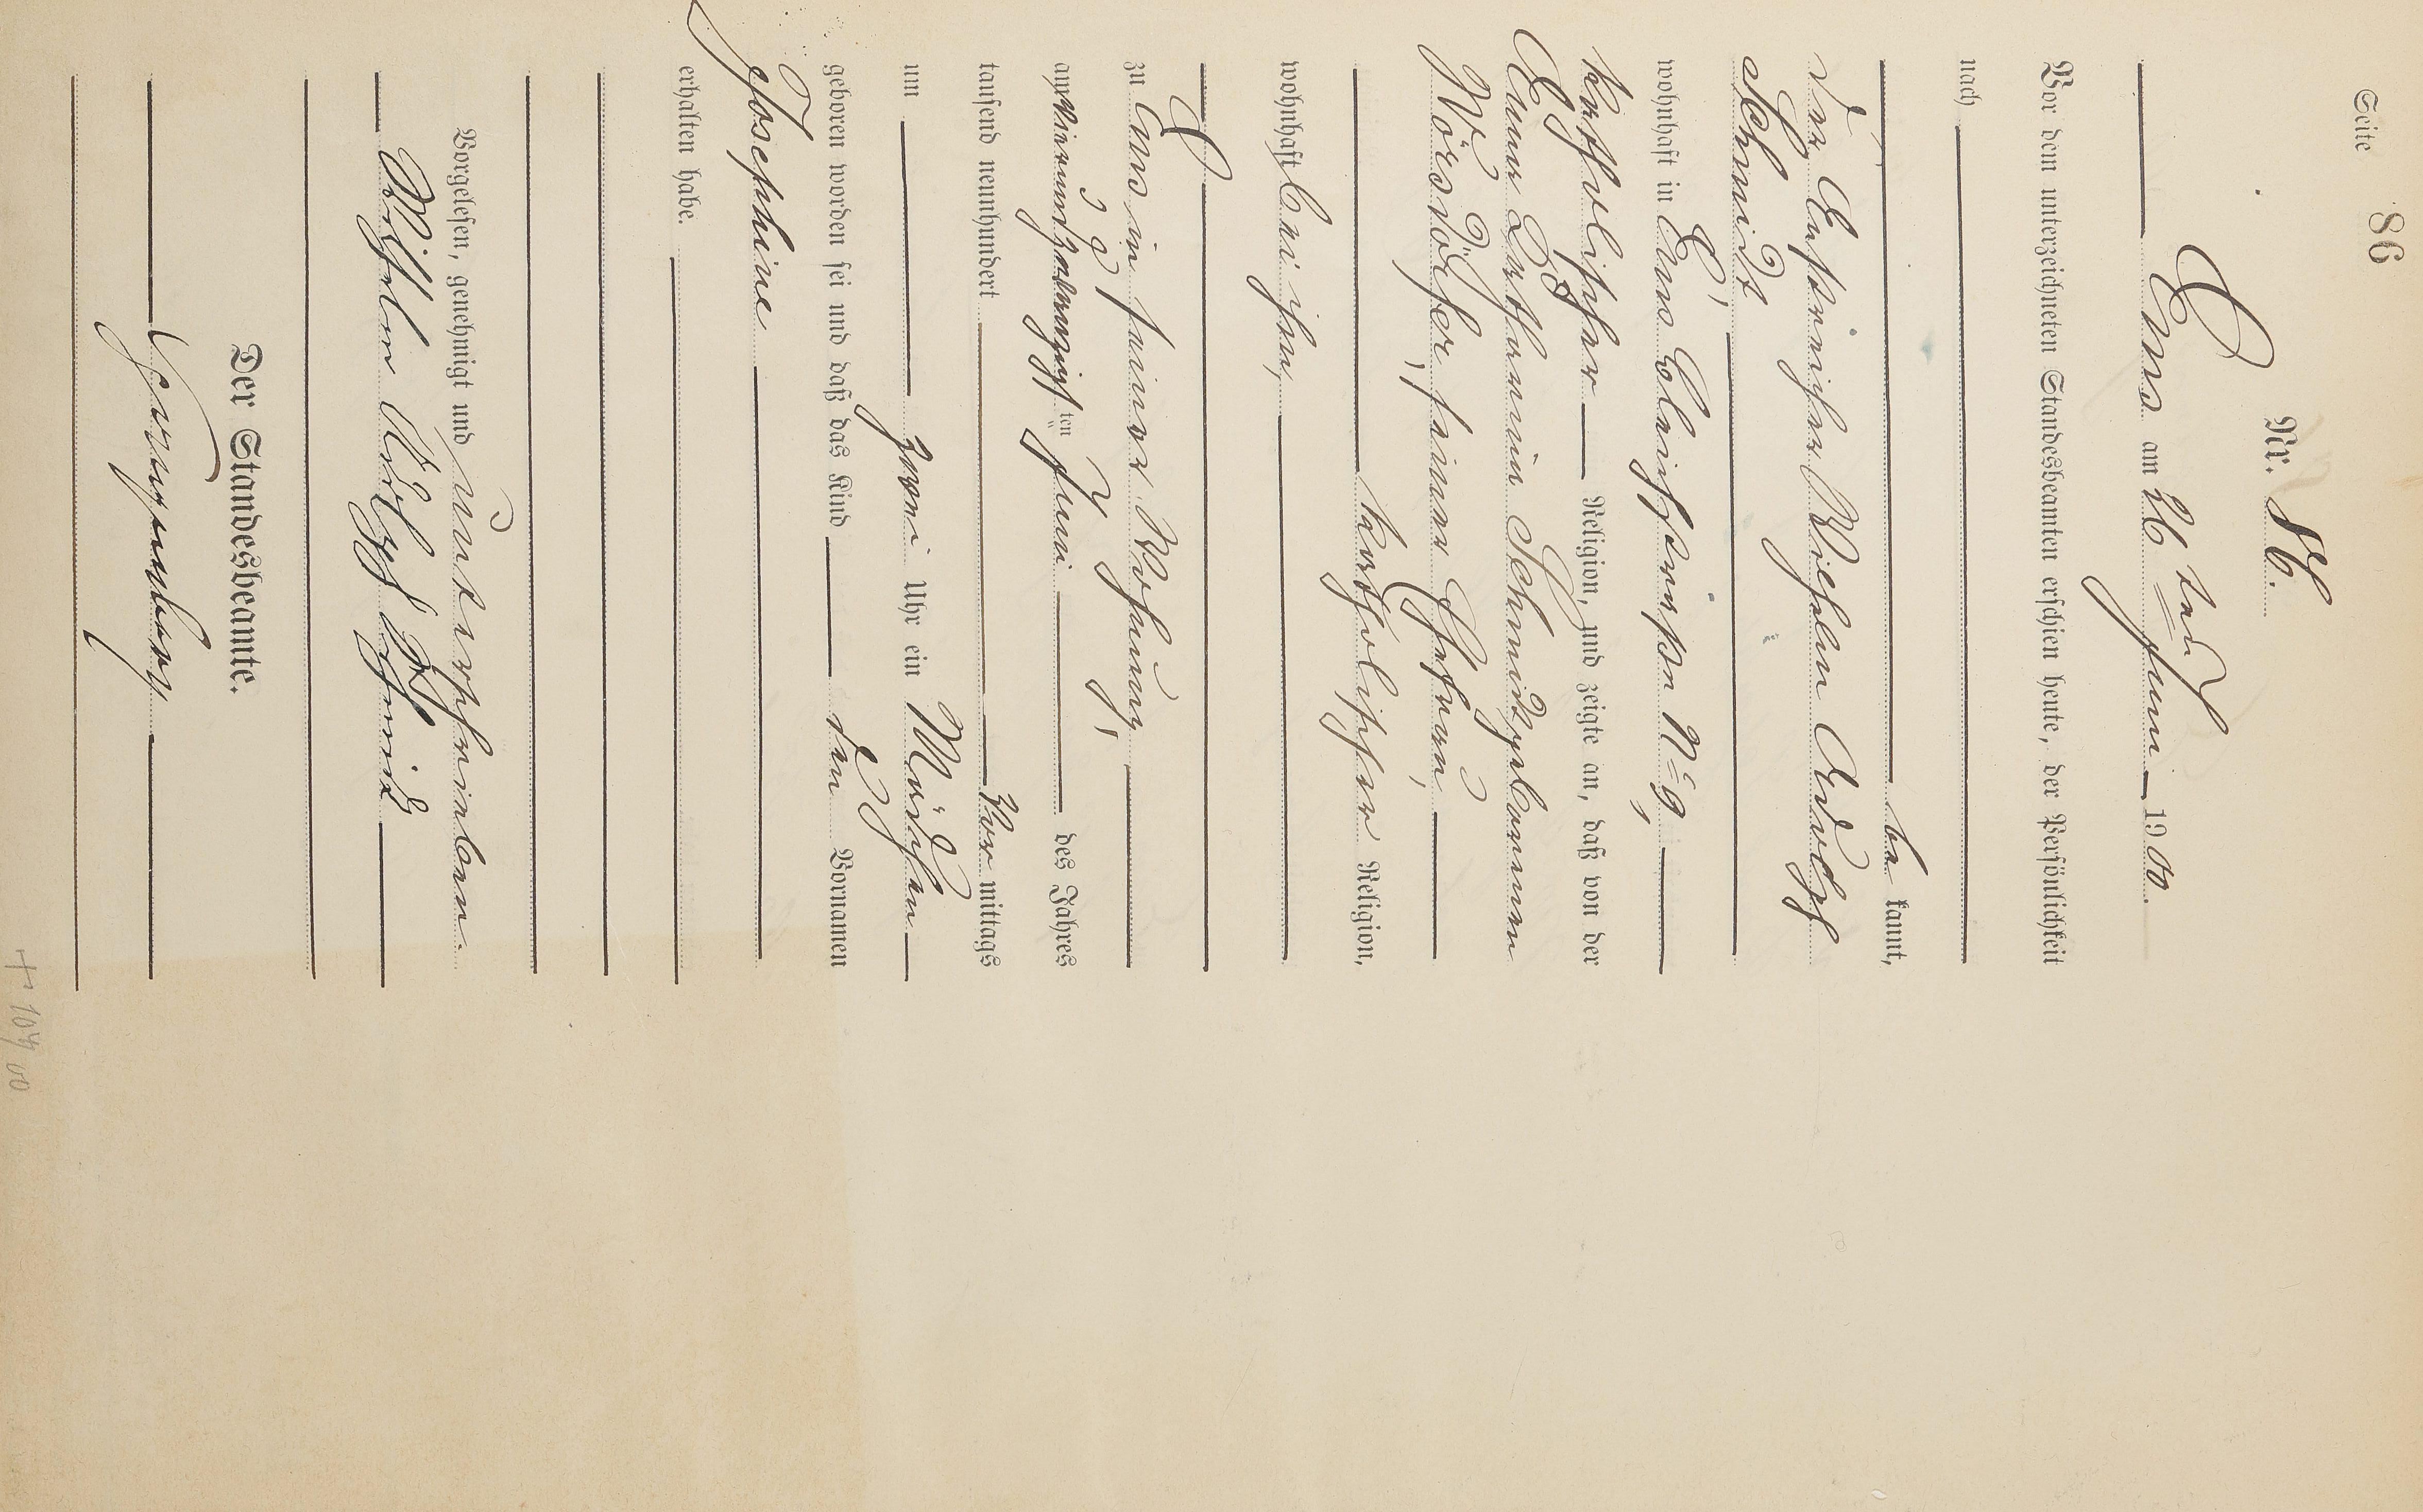 Seite 86
Nr. 86.
Ems am 26 ten Juni 1900.
Vor dem unterzeichneten Standesbeamten erschien heute, der Persönlichkeit
nach
be kannt,
der Anstreicher Wilhelm Rudolf
Schmidt
wohnhaft in Ems, Bleichstraße No 9,
katholischer Religion, und zeigte an, daß von der
Anna Katharina Schmidt geborenen
Wörsdörfer, seiner Ehefrau,
katholischer Religion,
wohnhaft bei ihm,
zu Ems in seiner Wohnung,
am vierundzwanzigsten Juni des Jahres
tausend neunhundert Vor mittags
um zwei Uhr ein Mädchen
geboren worden sei und daß das Kind den Vornamen
Josephine
erhalten habe.
Vorgelesen, genehmigt und unterschrieben.
Wilhelm Rudolf Schmidt
Der Standesbeamte.
+ 104/00